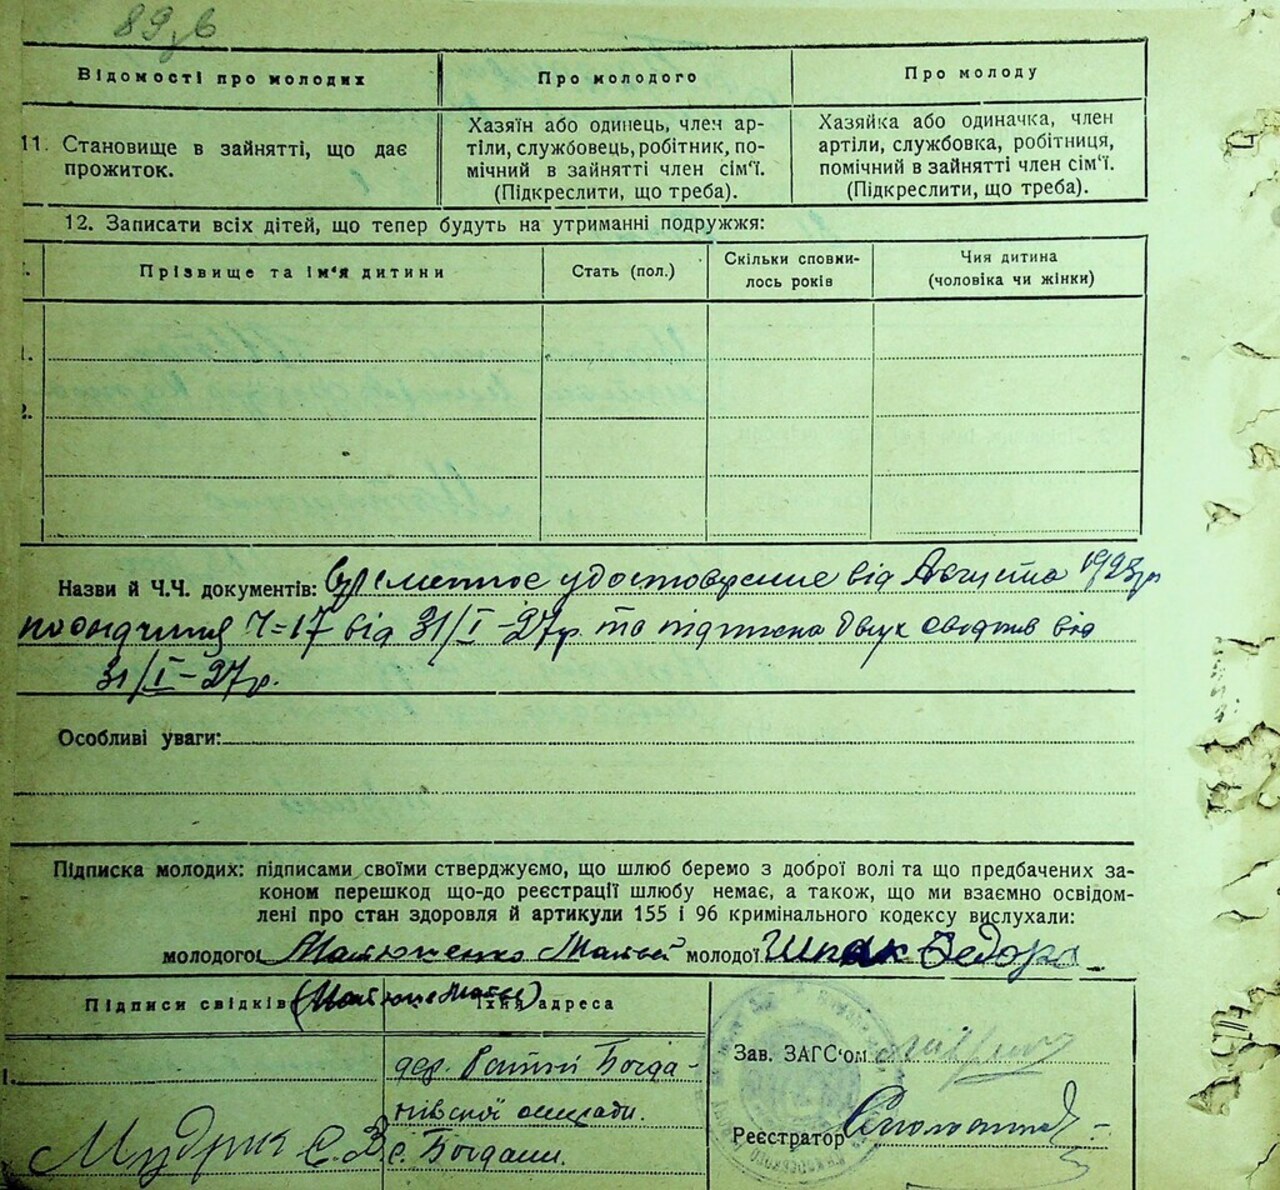 89зв
Відомості про молодих
Про молодого
Про молоду
11. Становище в зайнятті, що дає
прожиток.
Хазяїн або одинець, член ар-
тіли, службовець, робітник, по-
мічний в зайнятті член сім'ї.
(Підкреслити, що треба).
Хазяйка або одиначка, член
артіли, службовка, робітниця,
помічний в зайнятті член сім'ї.
(Підкреслити, що треба).
12. Записати всіх дітей, що тепер будуть на утриманні подружжя:
Прізвище та ім'я дитини
Стать (пол.)
Скільки сповни-
лось років
Чия дитина
(чоловіка чи жінки)
1.
2.
Назви й Ч.Ч. документів: Временное удостоверение від Августа 1923р
Ч=17 від 31/I-27р. та підписка двух від
31/I-27р.
Особливі уваги:
Підписка молодих: підписами своїми стверджуємо, що шлюб беремо з доброї волі та що предбачених за-
коном перешкод що-до реєстрації шлюбу немає, а також, що ми взаємно освідом-
лені про стан здоровля й артикули 155 і 96 кримінального кодексу вислухали:
молодого Матвій молодої Шпак Федора
Підписи свідків
їхня адреса
1.
дер. Богда-
нівської
с. Богдани.
Мудрик С.З.
Зав. ЗАГС'ом
Реєстратор